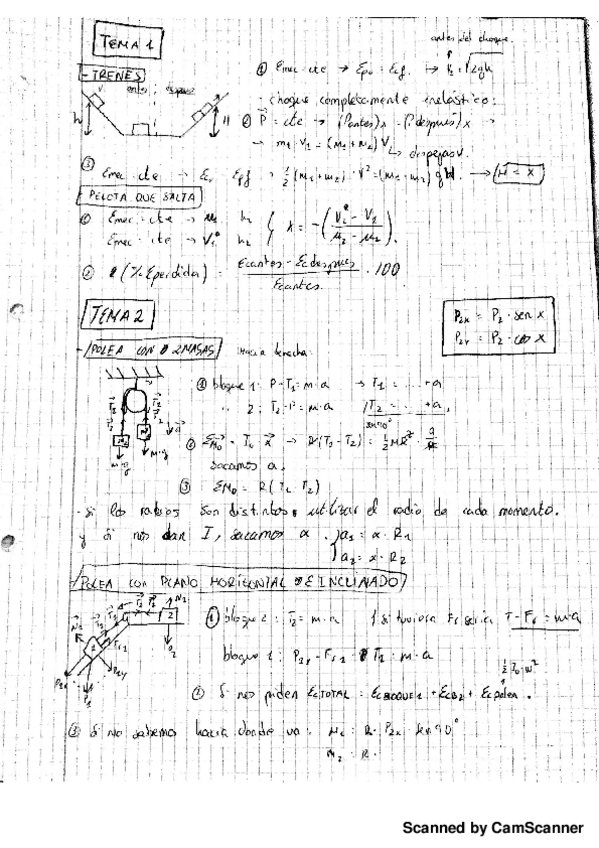 TEMA 1
antes del choque.
- TRENES
① Emec cte → Epo = Ecf. → V₁ = √2gh
antes después
choque completamente inelástico:
h H
② P = cte → (Pantes)x = (Pdespués)x →
→ m₁·V₁ = (M₁+M₂) V
↳ despejas V.
③ Emec cte → Ec Epf → ½(M₁+M₂)·V² = (M₁+M₂) g H. → H = X
PELOTA QUE SALTA
① Emec cte → h₁
Emec cte → h₂
② (% Eperdida) = Ecantes - Ecdespués / Ecantes · 100
TEMA 2
P₂ₓ = P₂ · sen X
P₂ᵧ = P₂ · cos X
- POLEA CON 2 MASAS hacia derecha:
① bloque 1: P-T₁ = m·a → T₁ = ... -a
" 2: T₂-P = m·a T₂ = ... +a,
sen90°
sacamos a.
③ ΣM₀ = R(T₁ T₂)
- si los radios son distintos, utilizar el radio de cada momento.
y si nos dan I, sacamos α. a₁ = α · R₁
a₂ = α · R₂
- POLEA CON PLANO HORIZONTAL E INCLINADO
① bloque 2: T₂ = m·a si tuviera Fr sería T - Fr = m·a
bloque 1: P₁ₓ - Fr₁ - T₁ = m·a
½ I₀·ω²
② Si nos piden EcTOTAL = EcBLOQUE 1 + EcB2 + Ecpolea.
③ Si no sabemos hacia donde va: M₁ = R · P₂ₓ · sen90°
M₂ = R ·
Scanned by CamScanner